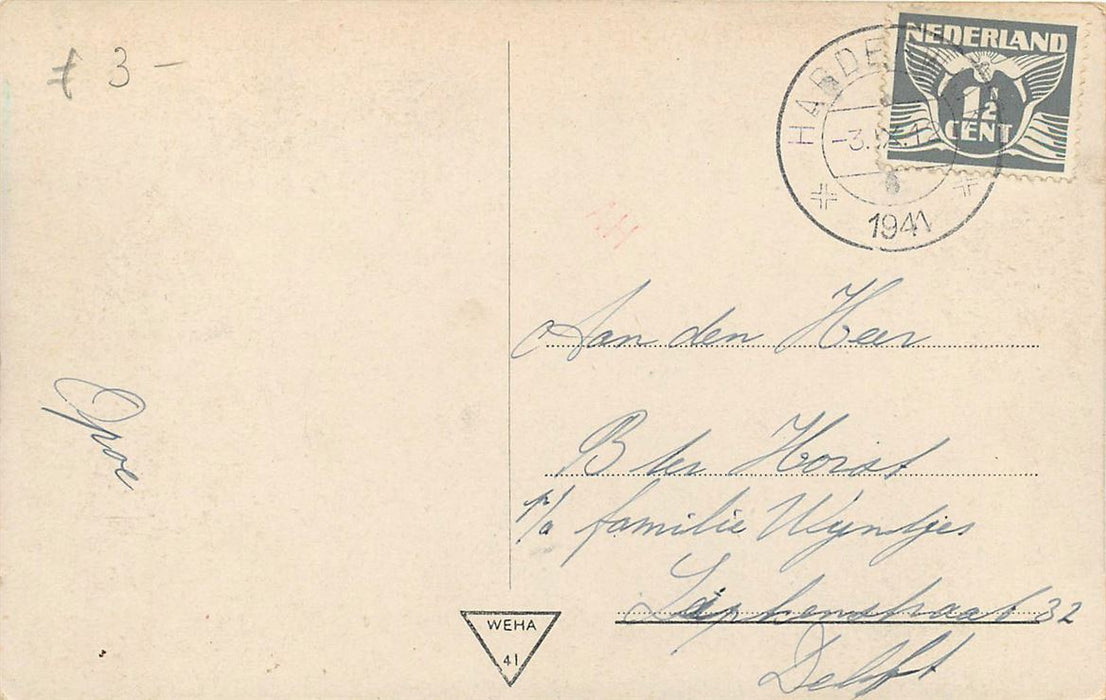 ƒ 3 —
NEDERLAND
1½
CENT
1941
Opoe
Aan den Heer
B ter Horst
p/a familie Wijntjes
32
Delft
WEHA
41